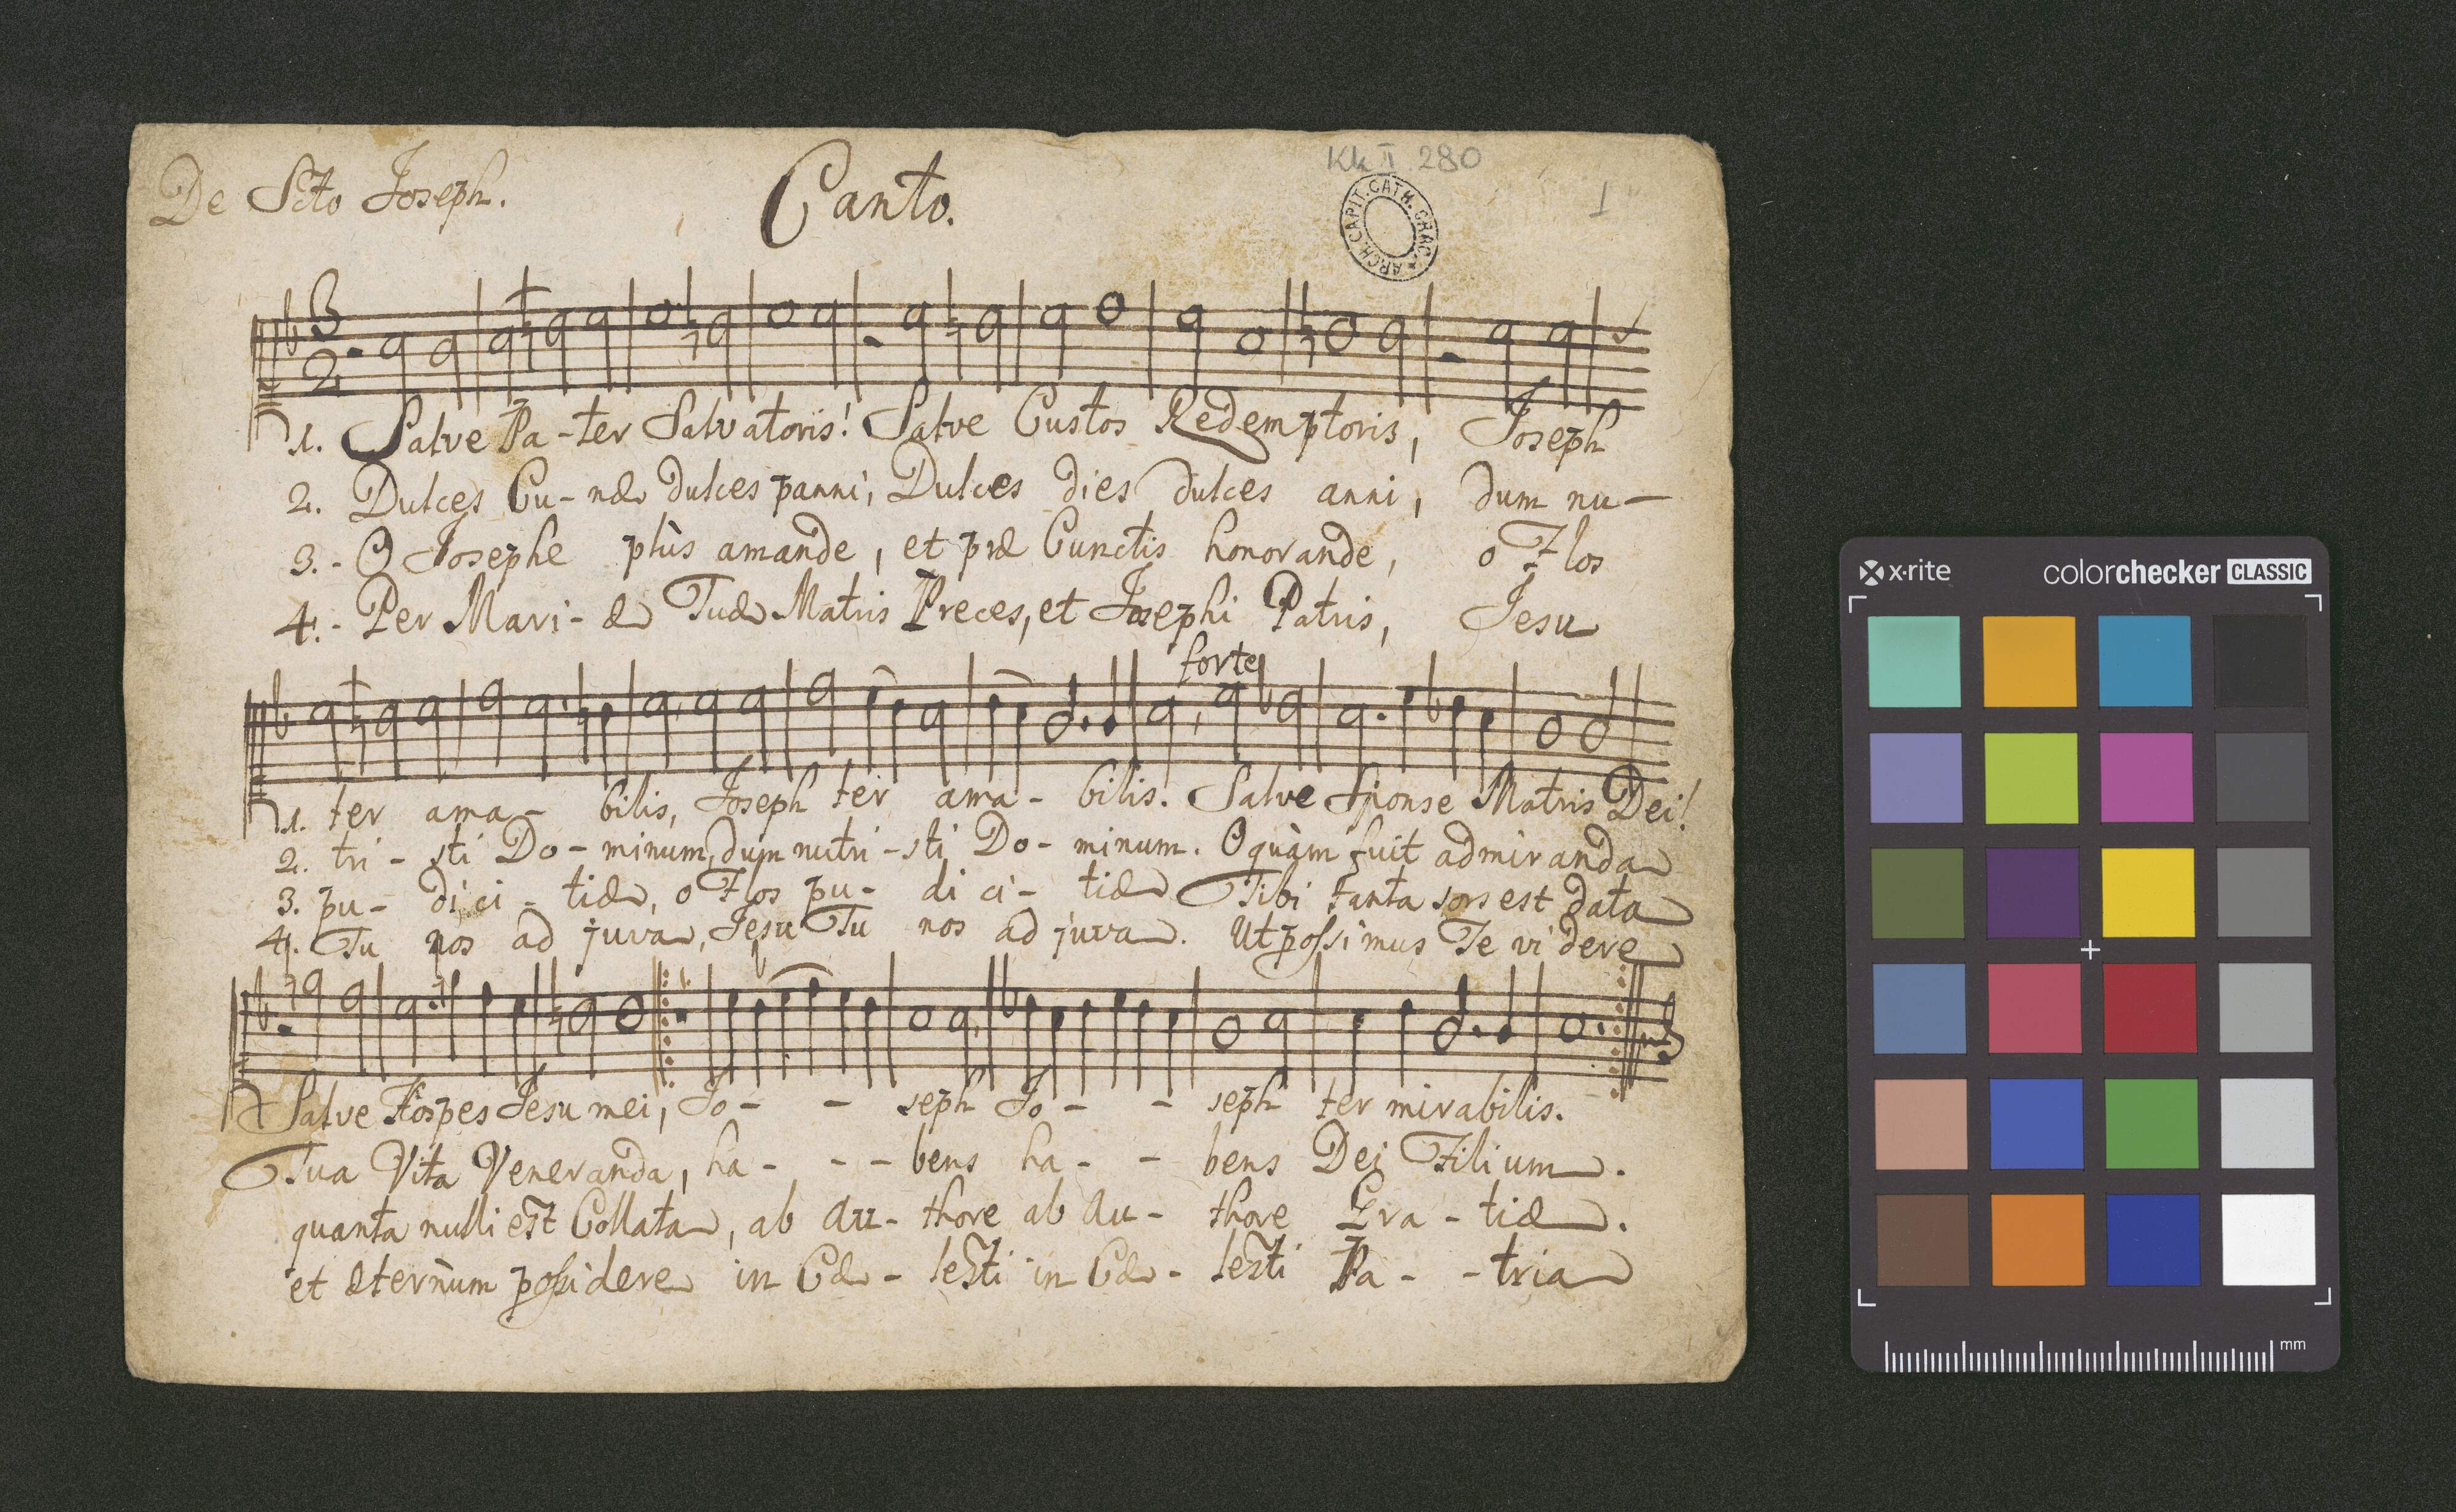 De Scto Joseph.
Canto.
Kk II 280
ARCH. CAPIT. CATH. CRAC.
1
3
2
1. Salve Pa-ter Salvatoris! Salve Custos Redemptoris, Joseph
2. Dulces Cu-næ dulces panni, Dulces dies dulces anni, dum nu-
3.- O Josephe plùs amande, et præ Cunctis honorande, o Flos
4.- Per Mari-æ Tuæ Matris Preces, et Josephi Patris, Jesu
forte
1. ter ama- bilis, Joseph ter ama- bilis. Salve Sponse Matris Dei!
2. tri- sti Do- minum, dum nutri-sti Do- minum. O quàm fuit admiranda
3. pu- di ci- tiæ, o Flos pu- di ci- tiæ Tibi tanta sors est data
4. Tu nos ad juva, Jesu Tu nos ad juva. Ut possimus Te videre
Salve Hospes Jesu mei, Jo- - seph Jo- - seph ter mirabilis.
Tua Vita Veneranda, ha- - - bens ha- - bens Dei Filium.
quanta nulli est Collata, ab Au- thore ab Au- thore Gra- tiæ.
et æternùm possidere in Cæ- lesti in Cæ- lesti Pa- - tria
x·rite
colorchecker CLASSIC
mm